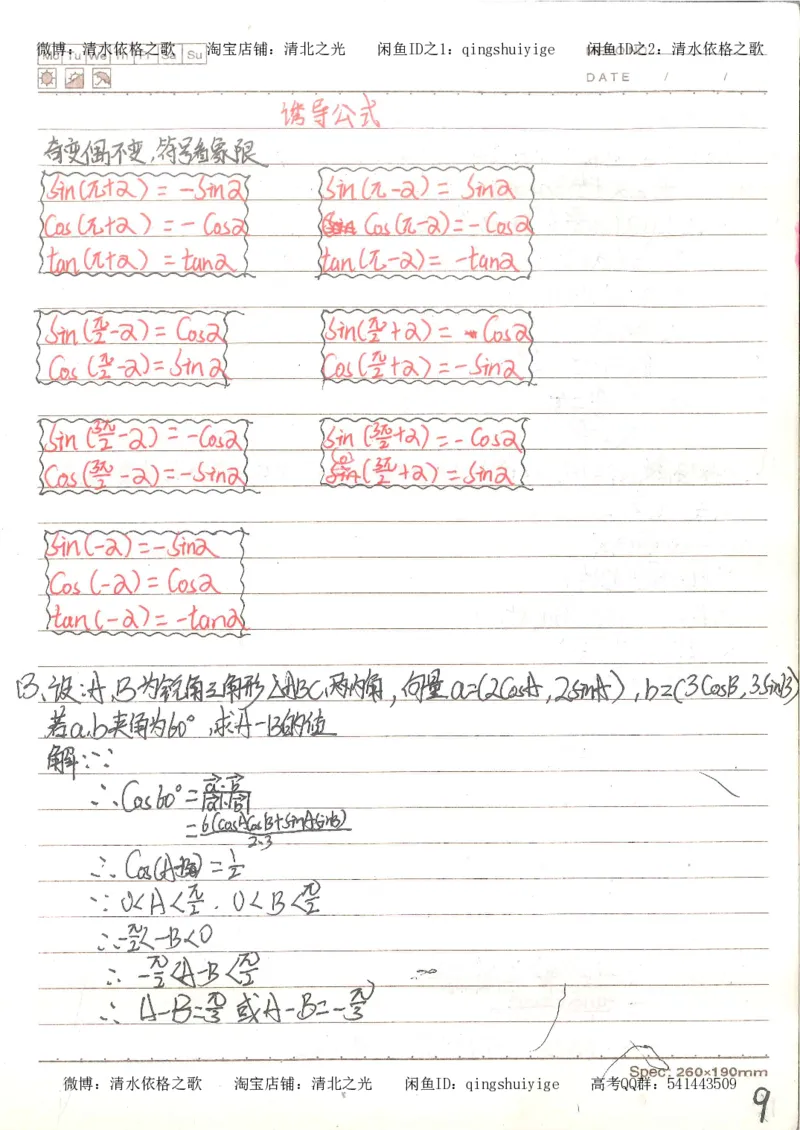 微博：清水依格之歌 淘宝店铺：清北之光 闲鱼ID之1：qingshuiyige 闲鱼ID之2：清水依格之歌
Mo Tu We Th Fr Sa Su
DATE / /
诱导公式
奇变偶不变,符号看象限
Sin(π+α) = -Sinα Sin(π-α) = Sinα
Cos(π+α) = -Cosα Cos(π-α) = -Cosα
tan(π+α) = tanα tan(π-α) = -tanα
Sin(π/2-α) = Cosα Sin(π/2+α) = Cosα
Cos(π/2-α) = Sinα Cos(π/2+α) = -Sinα
Sin(3π/2-α) = -Cosα Sin(3π/2+α) = -Cosα
Cos(3π/2-α) = -Sinα Cos(3π/2+α) = Sinα
Sin(-α) = -Sinα
Cos(-α) = Cosα
tan(-α) = -tanα
13、设:A,B为锐角三角形△ABC两内角,向量a=(2CosA, 2sinA), b=(3CosB, 3SinB)
若a,b夹角为60°,求A-B的值
解:∵
∴Cos60° = a·b/|a|·|b|
= 6(CosACosB+SinASinB)/2·3
∴ Cos(A-B) = 1/2
∵ 0<A<π/2, 0<B<π/2
∴ -π/2<-B<0
∴ -π/2<A-B<π/2
∴ A-B=π/3 或A-B=-π/3
Spec: 260×190mm
微博：清水依格之歌 淘宝店铺：清北之光 闲鱼ID：qingshuiyige 高考QQ群：541443509
9